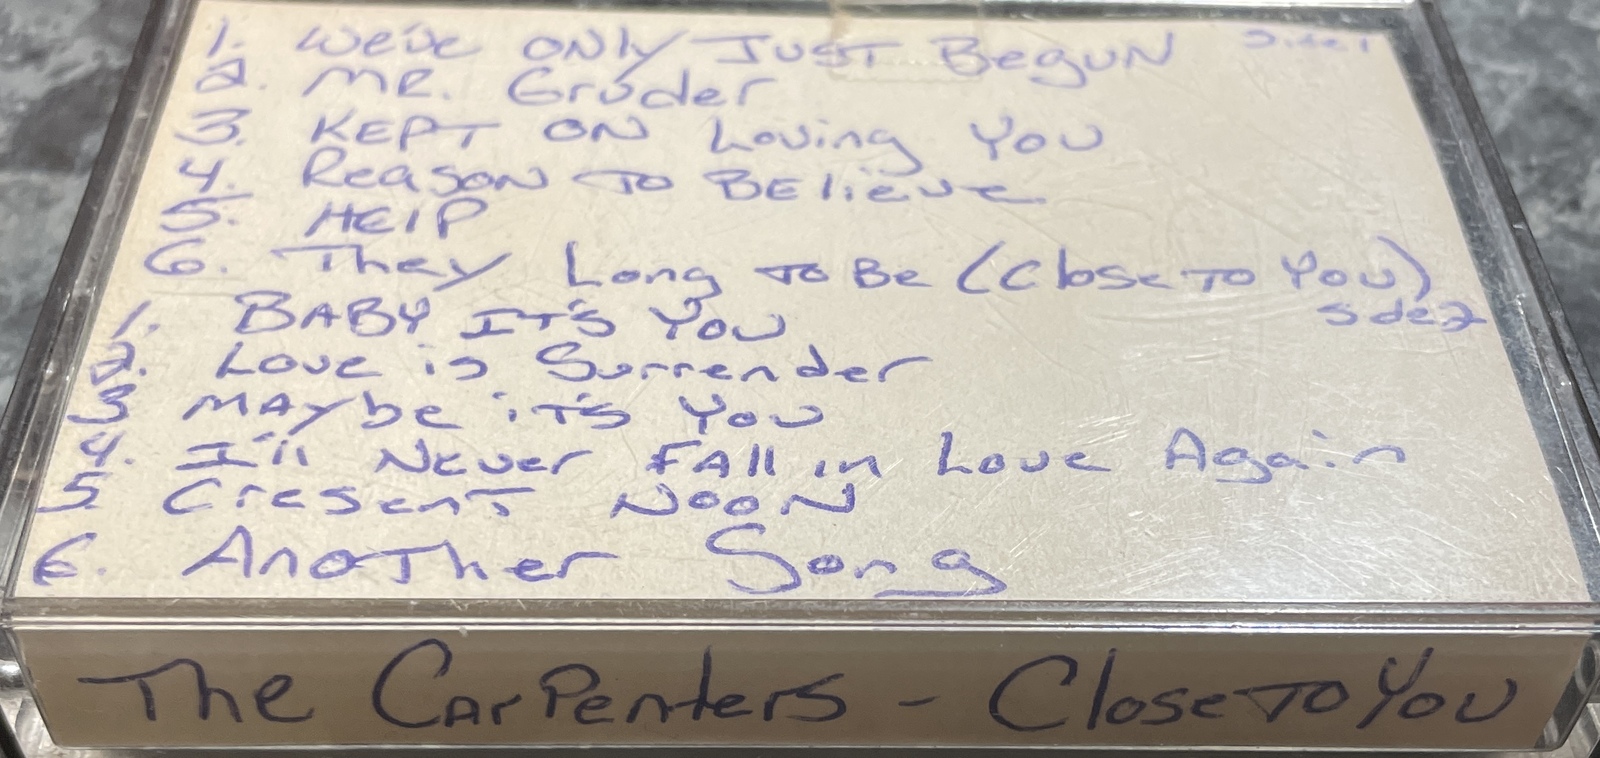 1. We've ONly JUST BegUN Side 1
2. MR. Gruder
3. KEPT ON Loving YOU
4. Reason TO BElieve
5. HElP
6. They Long TO Be (Close TO YOU)
Side 2
1. BABY IT'S YOU
2. Love is Surrender
3 MAybe iT'S YOU
4. I'll Never FAll in Love Again
5 CresenT NOON
6. AnoTher Song
The CarPenters - Close TO YOU